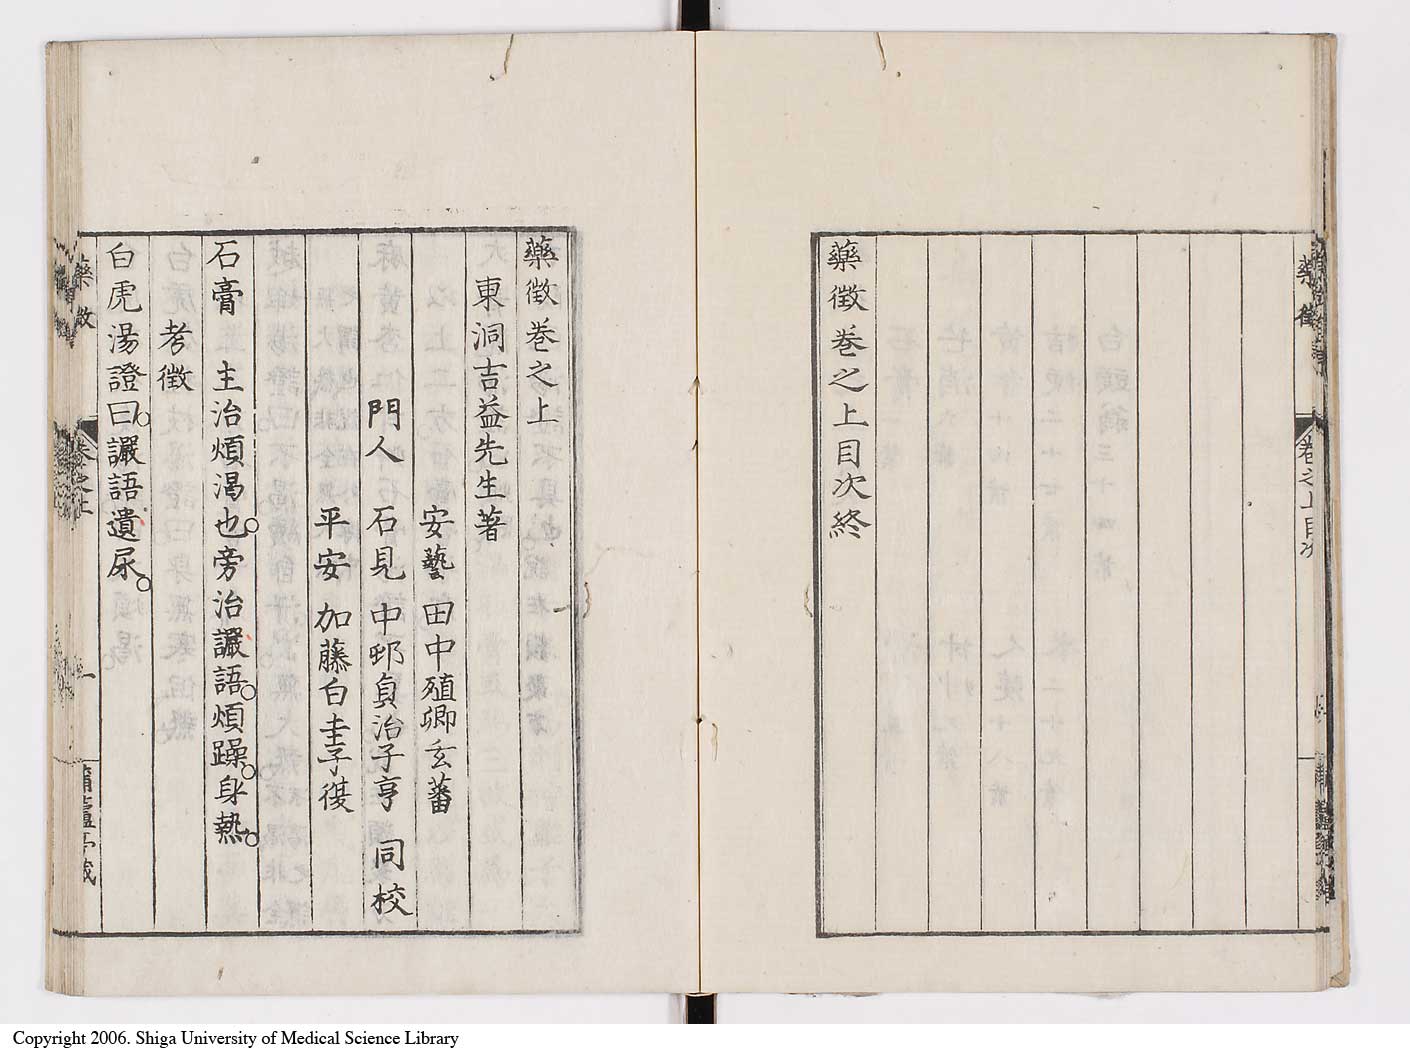 藥徵
卷之上目次
藥徵卷之上目次終
藥徵卷之上
東洞吉益先生著
安藝 田中殖卿玄蕃
門人 石見 中邨貞治子亨 同校
平安 加藤白圭子復
石膏 主治煩渴也。旁治讝語。煩躁。身熱。
考徵
白虎湯證曰。讝語遺尿。
藥徵
卷之上
一
Copyright 2006. Shiga University of Medical Science Library